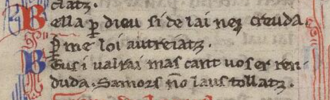 clatz.
Bella p̃ dieu si de lai nez creuda
p̃ me loi autreiatz.
Eus i valrai mas cant uos er ren
duda. Samors nõ laus tollatz.